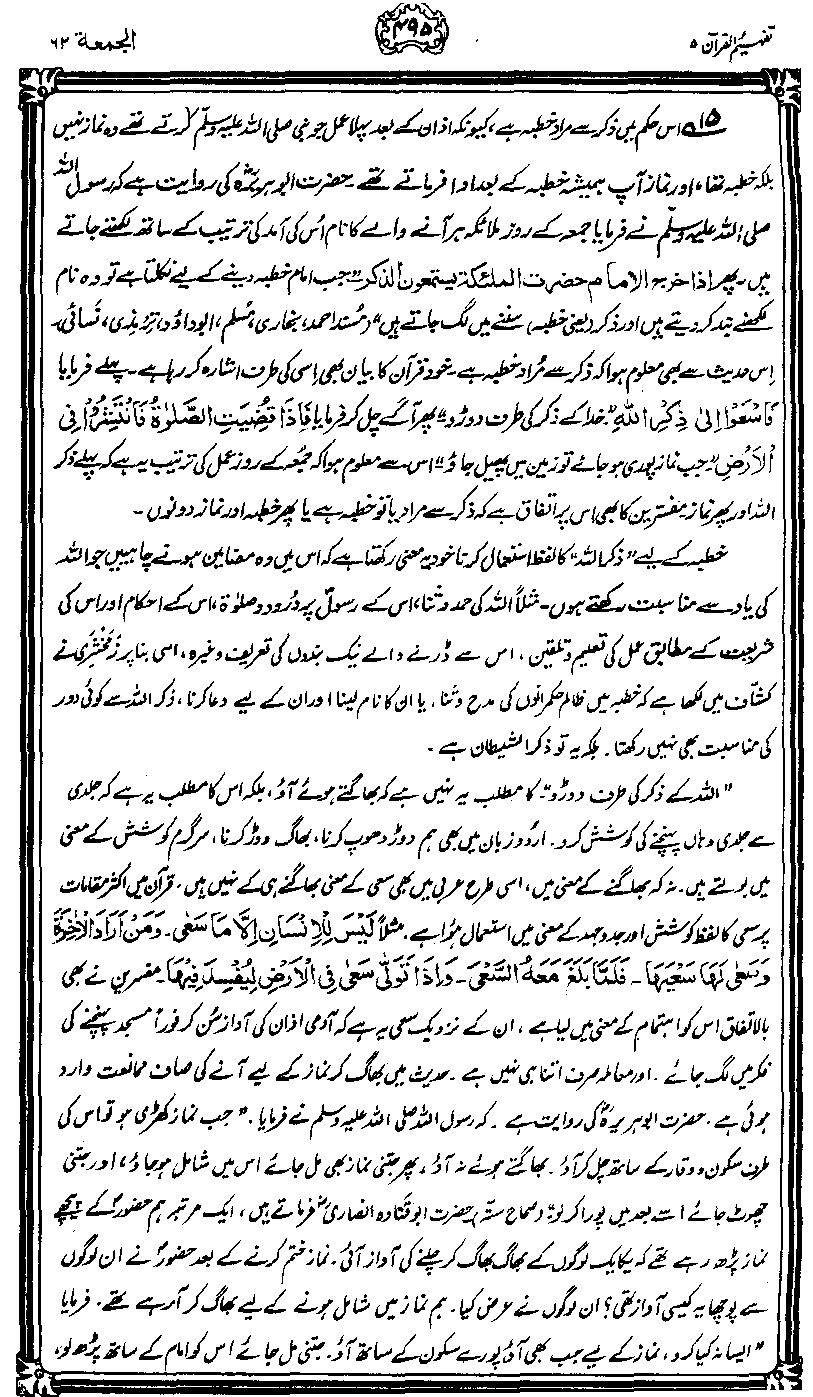 تفہیم القرآن ۵
۴۹۵
الجمعة ۶۲
۱۵ اس حکم میں ذکر سے مراد خطبہ ہے، کیونکہ اذان کے بعد پہلا عمل جو نبی صلی اللہ علیہ وسلم کرتے تھے وہ نماز نہیں
بلکہ خطبہ تھا، اور نماز آپ ہمیشہ خطبہ کے بعد ادا فرماتے تھے۔ حضرت ابوہریرہؓ کی روایت ہے کہ رسول اللہ
صلی اللہ علیہ وسلم نے فرمایا جمعہ کے روز ملائکہ ہر آنے والے کا نام اُس کی آمد کی ترتیب کے ساتھ لکھتے جاتے
ہیں۔ پھر اذا خرج الامام حضرت الملٰئکة یستمعون الذکر۔ ”جب امام خطبہ دینے کے لیے نکلتا ہے تو وہ نام
لکھنے بند کر دیتے ہیں اور ذکر (یعنی خطبہ) سننے میں لگ جاتے ہیں“ (مُسند احمد، بخاری، مُسلم، ابوداؤد، ترمذی، نَسائی)۔
اِس حدیث سے بھی معلوم ہوا کہ ذکر سے مُراد خطبہ ہے۔ خود قرآن کا بیان بھی اِسی کی طرف اشارہ کر رہا ہے۔ پہلے فرمایا
فَاسْعَوْا اِلٰی ذِکْرِ اللّٰہِ ”خدا کے ذکر کی طرف دوڑو“ پھر آگے چل کر فرمایا فَاِذَا قُضِیَتِ الصَّلٰوةُ فَانْتَشِرُوْا فِی
الْاَرْضِ ”جب نماز پوری ہو جائے تو زمین میں پھیل جاؤ“ اس سے معلوم ہوا کہ جمعہ کے روز عمل کی ترتیب یہ ہے کہ پہلے ذکر
اللہ اور پھر نماز۔ مفسّرین کا بھی اس پر اتفاق ہے کہ ذکر سے مراد یا تو خطبہ ہے یا پھر خطبہ اور نماز دونوں۔
خطبہ کے لیے ”ذکر اللہ“ کا لفظ استعمال کرنا خود یہ معنی رکھتا ہے کہ اس میں وہ مضامین ہونے چاہییں جو اللہ
کی یاد سے مناسبت رکھتے ہوں۔ مثلاً اللہ کی حمد و ثنا، اس کے رسولؐ پر درُود و صلوٰة، اس کے احکام اور اس کی
شریعت کے مطابق عمل کی تعلیم و تلقین، اس سے ڈرنے والے نیک بندوں کی تعریف وغیرہ، اسی بنا پر زَمَخْشَری نے
کشّاف میں لکھا ہے کہ خطبہ میں ظالم حکمرانوں کی مدح و ثنا، یا ان کا نام لینا اور ان کے لیے دعا کرنا، ذکر اللہ سے کوئی دور
کی مناسبت بھی نہیں رکھتا۔ بلکہ یہ تو ذکر الشیطان ہے۔
”اللہ کے ذکر کی طرف دوڑو“ کا مطلب یہ نہیں ہے کہ بھاگتے ہوئے آؤ، بلکہ اس کا مطلب یہ ہے کہ جلدی
سے جلدی وہاں پہنچنے کی کوشش کرو۔ اردو زبان میں بھی ہم دوڑ دھوپ کرنا، بھاگ دوڑ کرنا، سرگرم کوشش کے معنی
میں بولتے ہیں۔ نہ کہ بھاگنے کے معنی میں، اسی طرح عربی میں بھی سعی کے معنی بھاگنے ہی کے نہیں ہیں۔ قرآن میں اکثر مقامات
پر سعی کا لفظ کوشش اور جدوجہد کے معنی میں استعمال ہوا ہے۔ مثلاً لَیْسَ لِلْاِنْسَانِ اِلَّا مَا سَعٰی۔ وَمَنْ اَرَادَ الْاٰخِرَةَ
وَسَعٰی لَہَا سَعْیَہَا۔ فَلَمَّا بَلَغَ مَعَہُ السَّعْیَ۔ وَاِذَا تَوَلّٰی سَعٰی فِی الْاَرْضِ لِیُفْسِدَ فِیْہَا۔ مفسرین نے بھی
بالاتفاق اس کو اہتمام کے معنی میں لیا ہے، ان کے نزدیک سعی یہ ہے کہ آدمی اذان کی آواز سُن کر فوراً مسجد پہنچنے کی
فکر میں لگ جائے۔ اور معاملہ صرف اتنا ہی نہیں ہے۔ حدیث میں بھاگ کر نماز کے لیے آنے کی صاف ممانعت وارد
ہوئی ہے۔ حضرت ابوہریرہؓ کی روایت ہے۔ کہ رسول اللہ صلی اللہ علیہ وسلم نے فرمایا۔ ”جب نماز کھڑی ہو تو اس کی
طرف سکون و وقار کے ساتھ چل کر آؤ۔ بھاگتے ہوئے نہ آؤ، پھر جتنی نماز بھی مل جائے اس میں شامل ہو جاؤ، اور جتنی
چھوٹ جائے اسے بعد میں پورا کر لو“ (صحاح ستّہ) حضرت ابو قتادہ انصاریؓ فرماتے ہیں، ایک مرتبہ ہم حضورؐ کے پیچھے
نماز پڑھ رہے تھے کہ یکایک لوگوں کے بھاگ بھاگ کر چلنے کی آواز آئی۔ نماز ختم کرنے کے بعد حضورؐ نے ان لوگوں
سے پوچھا یہ کیسی آواز تھی؟ ان لوگوں نے عرض کیا۔ ہم نماز میں شامل ہونے کے لیے بھاگ کر آ رہے تھے۔ فرمایا
”ایسا نہ کیا کرو، نماز کے لیے جب بھی آؤ پورے سکون کے ساتھ آؤ۔ جتنی مل جائے اس کو امام کے ساتھ پڑھ لو،